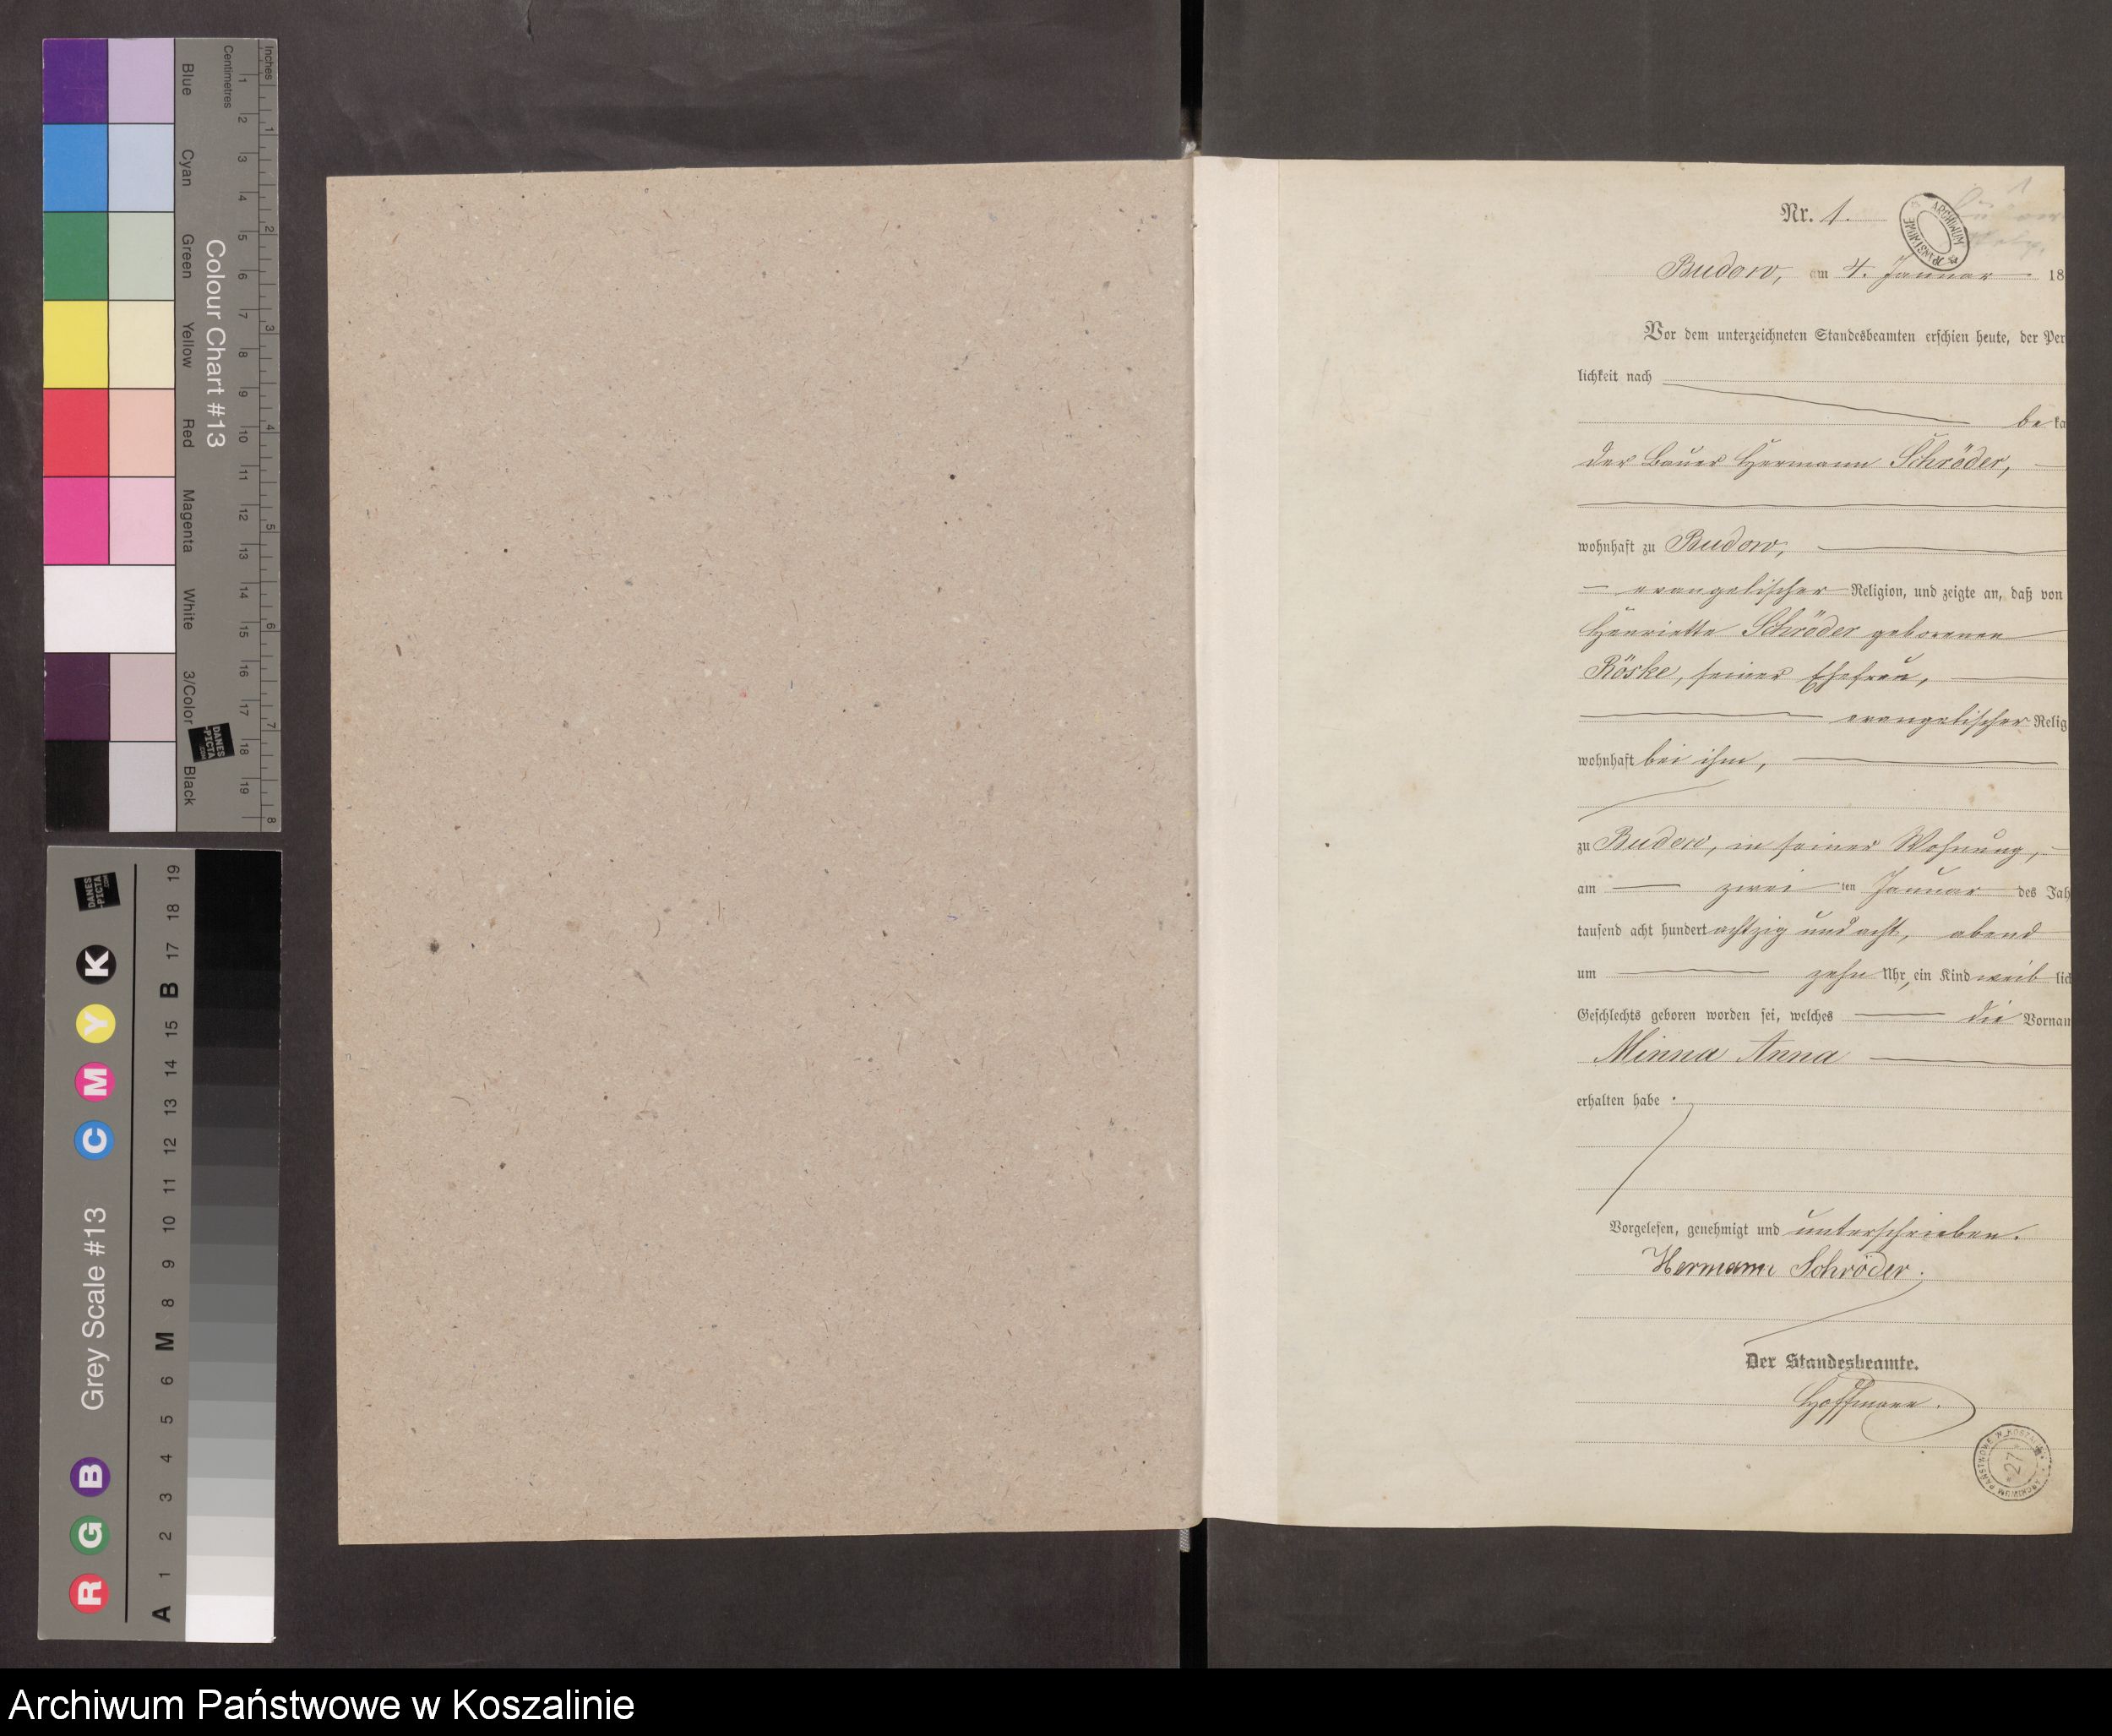 Inches
Centimetres
1 2 3 4 5 6 7 8
1 2 3 4 5 6 7 8 9 10 11 12 13 14 15 16 17 18 19
Colour Chart #13
Blue
Cyan
Green
Yellow
Red
Magenta
White
3/Color
Black
DANES
-PICTA
.COM
Grey Scale #13
R G B C M Y K
A 1 2 3 4 5 6 M 8 9 10 11 12 13 14 15 B 17 18 19
DANES
-PICTA
.COM
1
Nr. 1.
ARCHIWUM PAŃSTWOWE
Budow, am 4. Januar 18
Vor dem unterzeichneten Standesbeamten erschien heute, der Per
lichkeit nach
be ka
der Bauer Hermann Schröder,
wohnhaft zu Budow,
evangelischer Religion, und zeigte an, daß von
Henriette Schröder geborenen
Röske, seiner Ehefrau,
evangelischer Relig
wohnhaft bei ihm,
zu Budow, in seiner Wohnung,
am zwei ten Januar des Jah
tausend acht hundert achtzig und acht, abend
um zehn Uhr, ein Kind weib lic
Geschlechts geboren worden sei, welches die Vornam
Minna Anna
erhalten habe.
Vorgelesen, genehmigt und unterschrieben.
Hermann Schröder.
Der Standesbeamte.
Hoffmann.
ARCHIWUM PAŃSTWOWE W KOSZALINIE
27
Archiwum Państwowe w Koszalinie